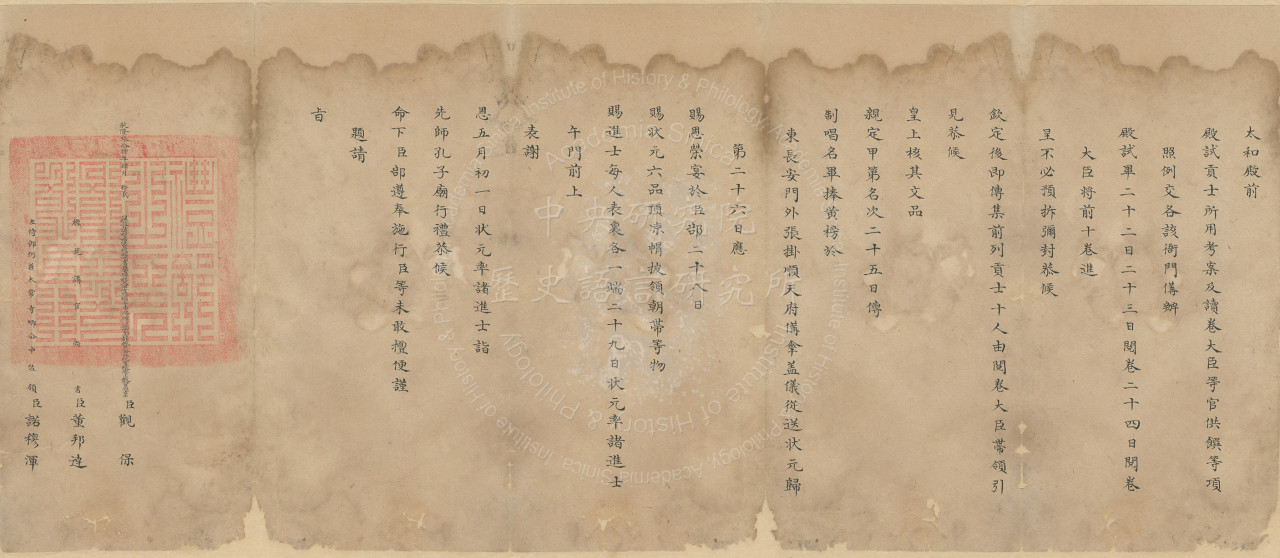 太和殿前
殿試貢士所用考案及讀卷大臣等官供饌等項
照例交各該衙門備辦
殿試畢二十二日二十三日閱卷二十四日閱卷
大臣將前十卷進
呈不必預拆彌封恭候
欽定後即傳集前列貢士十人由閱卷大臣帶領引
見恭候
皇上核其文品
親定甲第名次二十五日傳
制唱名畢捧黃榜於
東長安門外張掛順天府備傘蓋儀從送狀元歸
第二十六日應
賜恩榮宴於臣部二十八日
賜狀元六品頂凉帽披領朝帶等物
賜進士每人表裏各一端二十九日狀元率諸進士
午門前上
表謝
恩五月初一日狀元率諸進士詣
先師孔子廟行禮恭候
命下臣部遵奉施行臣等未敢擅便謹
題請
旨
臣觀保
臣董邦達
臣諾穆渾
中央研究院
歷史語言研究所
Institute of History & Philology, Academia Sinica